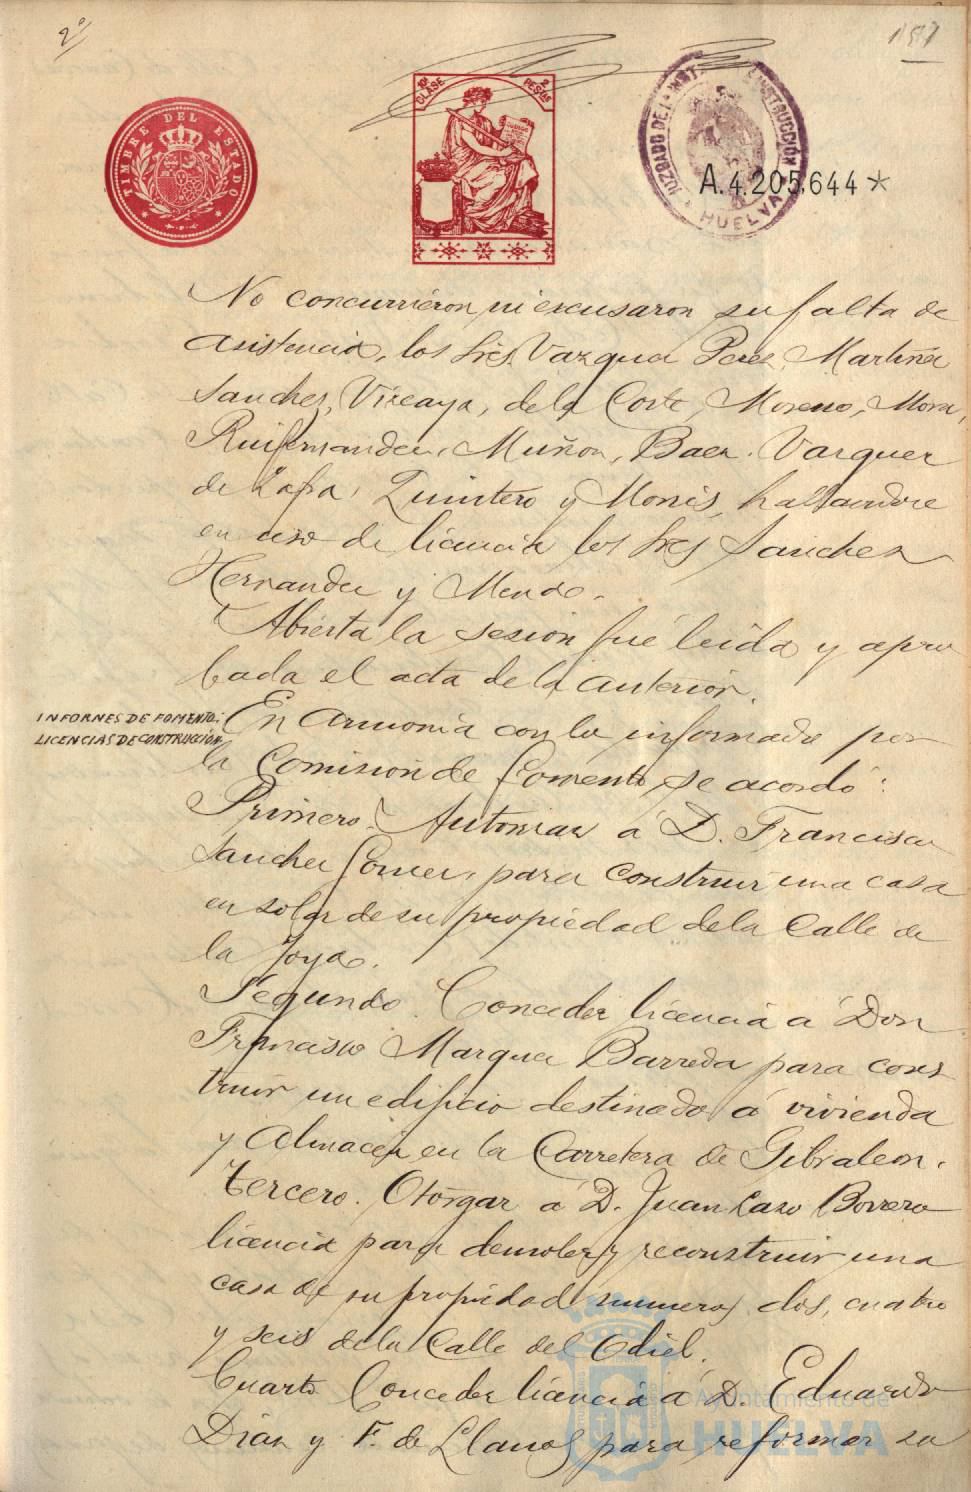 2º/
157
TIMBRE DEL ESTADO
10ª CLASE
2 PESETAS
JUZGADO DE 1ª INSTANCIA E INSTRUCCIÓN
HUELVA
A.4.205,644*
No concurrieron ni excusaron su falta de
asistencia, los Sres. Vazquez Perez, Martinez
Sanchez, Vizcaya, de la Corte, Moreno, Mora,
Ruifernandez, Muñoz, Baez, Vazquez
de Zafra, Quintero y Monis, hallandose
en uso de licencia los Sres Sanchez
Hernandez y Mendo.
Abierta la sesion fué leida y apro
bada el acta de la anterior.
INFORNES DE FOMENTO:
LICENCIAS DE CONSTRUCCIÓN
En armonia con lo informado por
la Comisión de Fomento, se acordó:
Primero. Autorizar á D. Francisco
Sanchez Gomez, para construir una casa
en solar de su propiedad de la Calle de
la Joya.
Segundo. Conceder licencia a Don
Francisco Marquez Barreda para cons
truir un edificio destinado á vivienda
y almacén en la Carretera de Gibraleon.
Tercero. Otorgar a D. Juan Lazo Borrero
licencia para demoler y reconstruir una
casa de su propiedad numeros dos, cuatro
y seis de la Calle del Odiel.
Cuarto. Conceder licencia á D. Eduardo
Diaz y F. de Llanos para reformar su
Ayuntamiento de
HUELVA